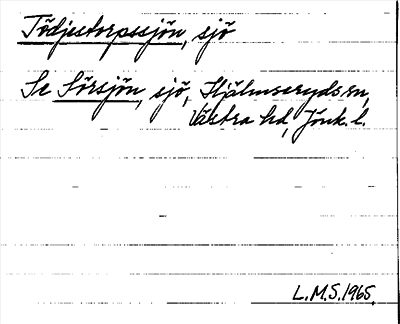 Tödjestorpssjön, sjö
Se Sörsjön, sjö, Hjälmseryds sn,
Västra hd, Jönk. l.
L.M.S. 1965